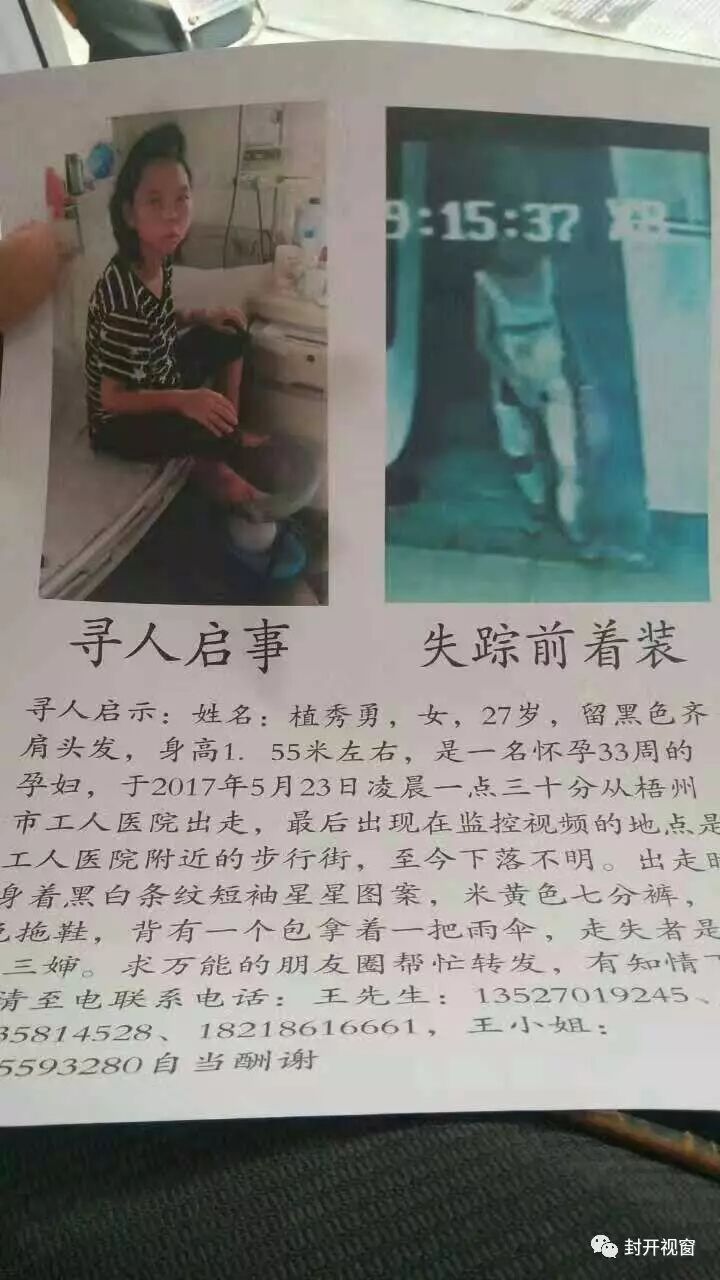 9:15:37
寻人启事
失踪前着装
寻人启示：姓名：植秀勇，女，27岁，留黑色齐
肩头发，身高1. 55米左右，是一名怀孕33周的
孕妇，于2017年5月23日凌晨一点三十分从梧州
市工人医院出走，最后出现在监控视频的地点是
工人医院附近的步行街，至今下落不明。出走时
身着黑白条纹短袖星星图案，米黄色七分裤，
色拖鞋，背有一个包拿着一把雨伞，走失者是
三婶。求万能的朋友圈帮忙转发，有知情
请至电联系电话：王先生：13527019245、
35814528、18218616661，王小姐：
5593280自当酬谢
封开视窗